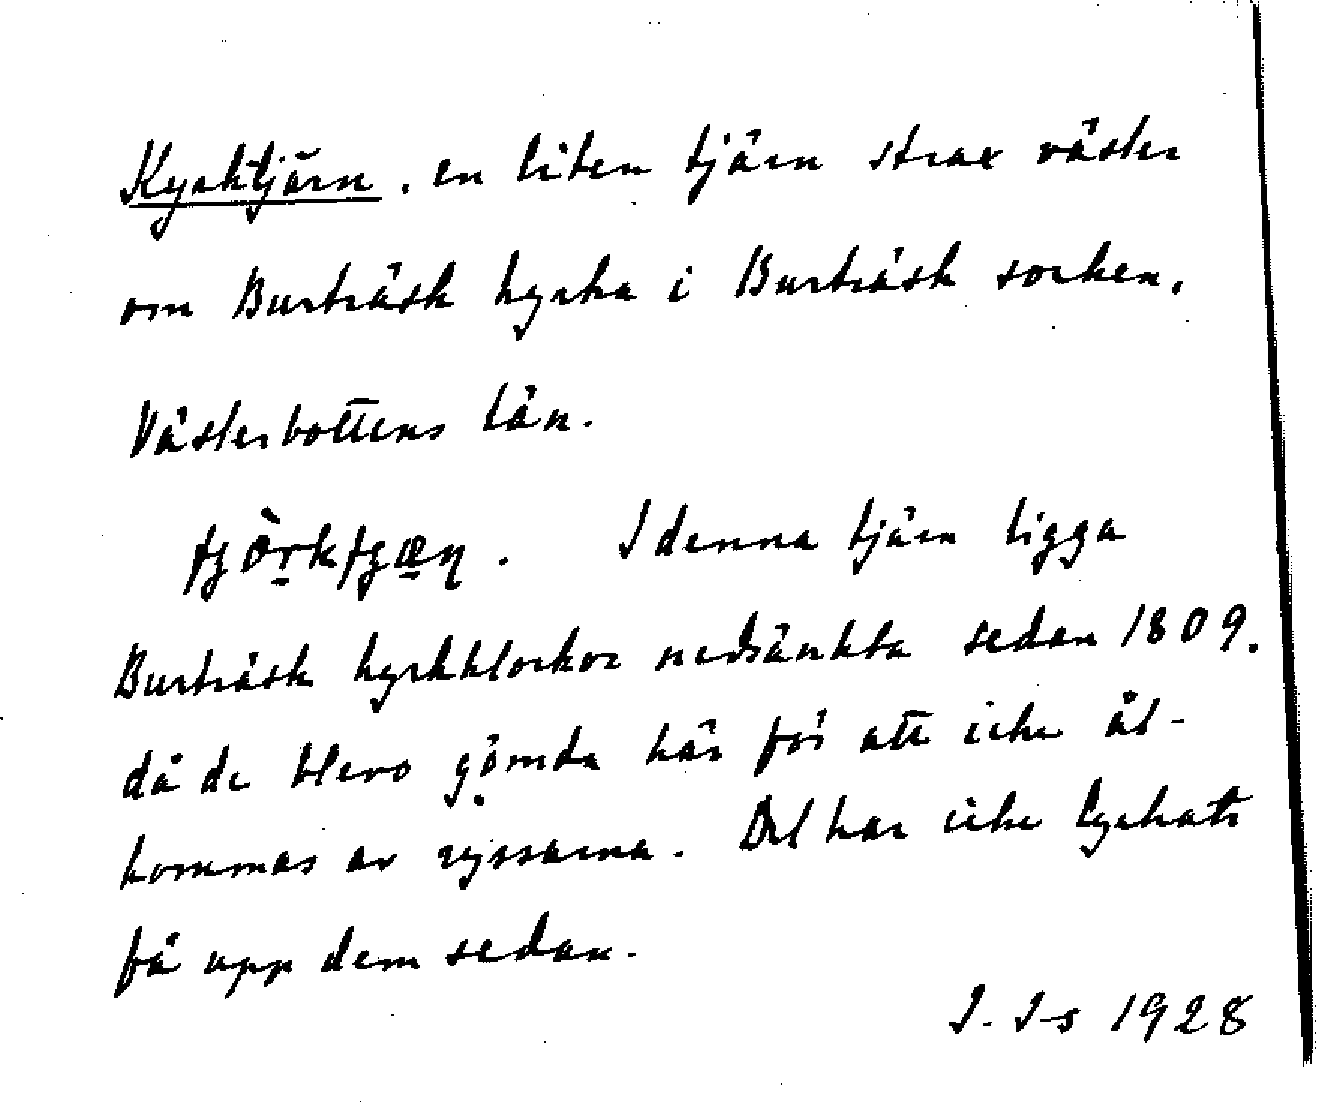 Kyrktjärn, en liten tjärn strax väster
om Burträsk kyrka i Burträsk socken,
Västerbottens län.
I denna tjärn ligga
Burträsk kyrkklockor nedsänkta sedan 1809.
då de blevo gömda här för att icke åt-
kommas av ryssarna. Det har icke lyckats
få upp dem sedan.
J. J-s 1928